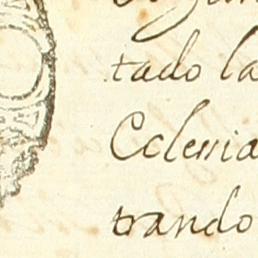 tado la
Eclesia
trando